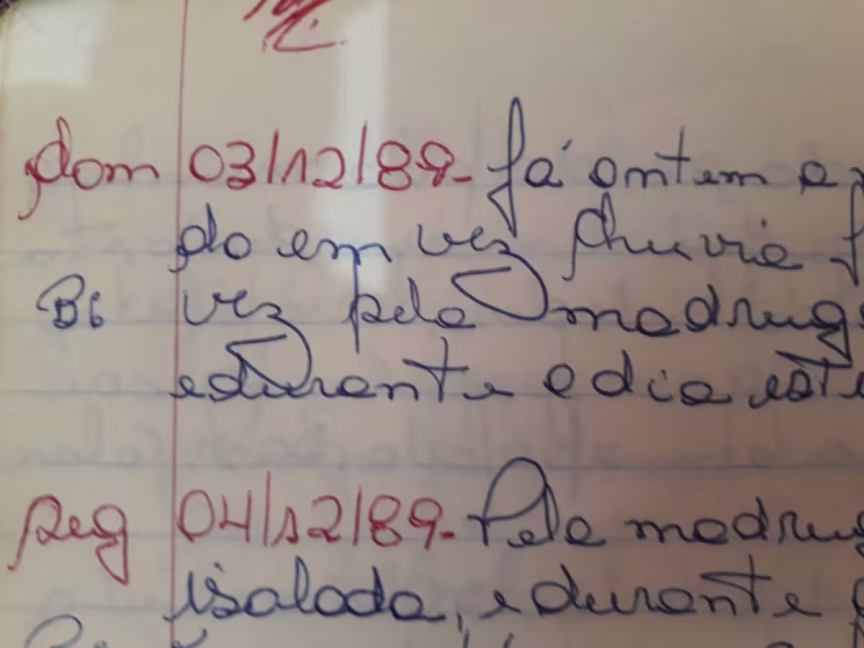 dom 03/12/89- Já ontem
do em vez chuvia
B6 vez pela madrug
e durante o dia este
seg 04/12/89- Pela madrug
isolada, e durante